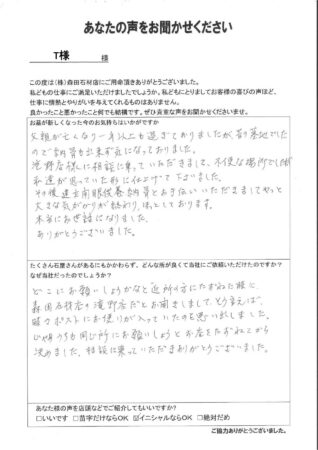 あなたの声をお聞かせください
T様 様
この度は(株)森田石材店にご用命頂きありがとうございました。
私どもの仕事にご満足いただけましたでしょうか。私どもにとりましてお客様の喜びの声ほど、
仕事に情熱とやりがいを与えてくれるものはありません。
良かったこと悪かったこと何でも結構です。ぜひ貴重な声をお聞かせくださいませ。
お墓が新しくなった今のお気持ちはいかがですか
父親が亡くなり一年以上も過ぎておりましたが、昔の墓地でした
ので納骨も出来ず気になっておりました。
滝野店様に相談に乗っていただきまして、不便な場所でしたが
私達が思っていた形に仕上げて下さいました。
その後建立開眼供養納骨とお手伝いいただきましてやっと
大きな気がかりが終わり、ほっとしております。
本当にお世話になりました。
ありがとうございました。
たくさん石屋さんがあるにもかかわらず、どんな所が良くて当社にご依頼いただけたのですか?
なぜ当社だったのでしょうか?
どこにお願いしようかなと近所の方にたずねた様に
森田石材店の滝野店だとお聞きしまして、そう言えば、
時々ポストにお便りが入っていたのを思い出しました。
じゃあうちも同じ所にお願いしようとお店をたずねてから
決めました。相談に乗っていただきありがとうございました。
あなた様の声を店頭などでご紹介してもいいですか?
□いいです □苗字だけならOK ☑イニシャルならOK □絶対だめ
ご協力ありがとうございました。